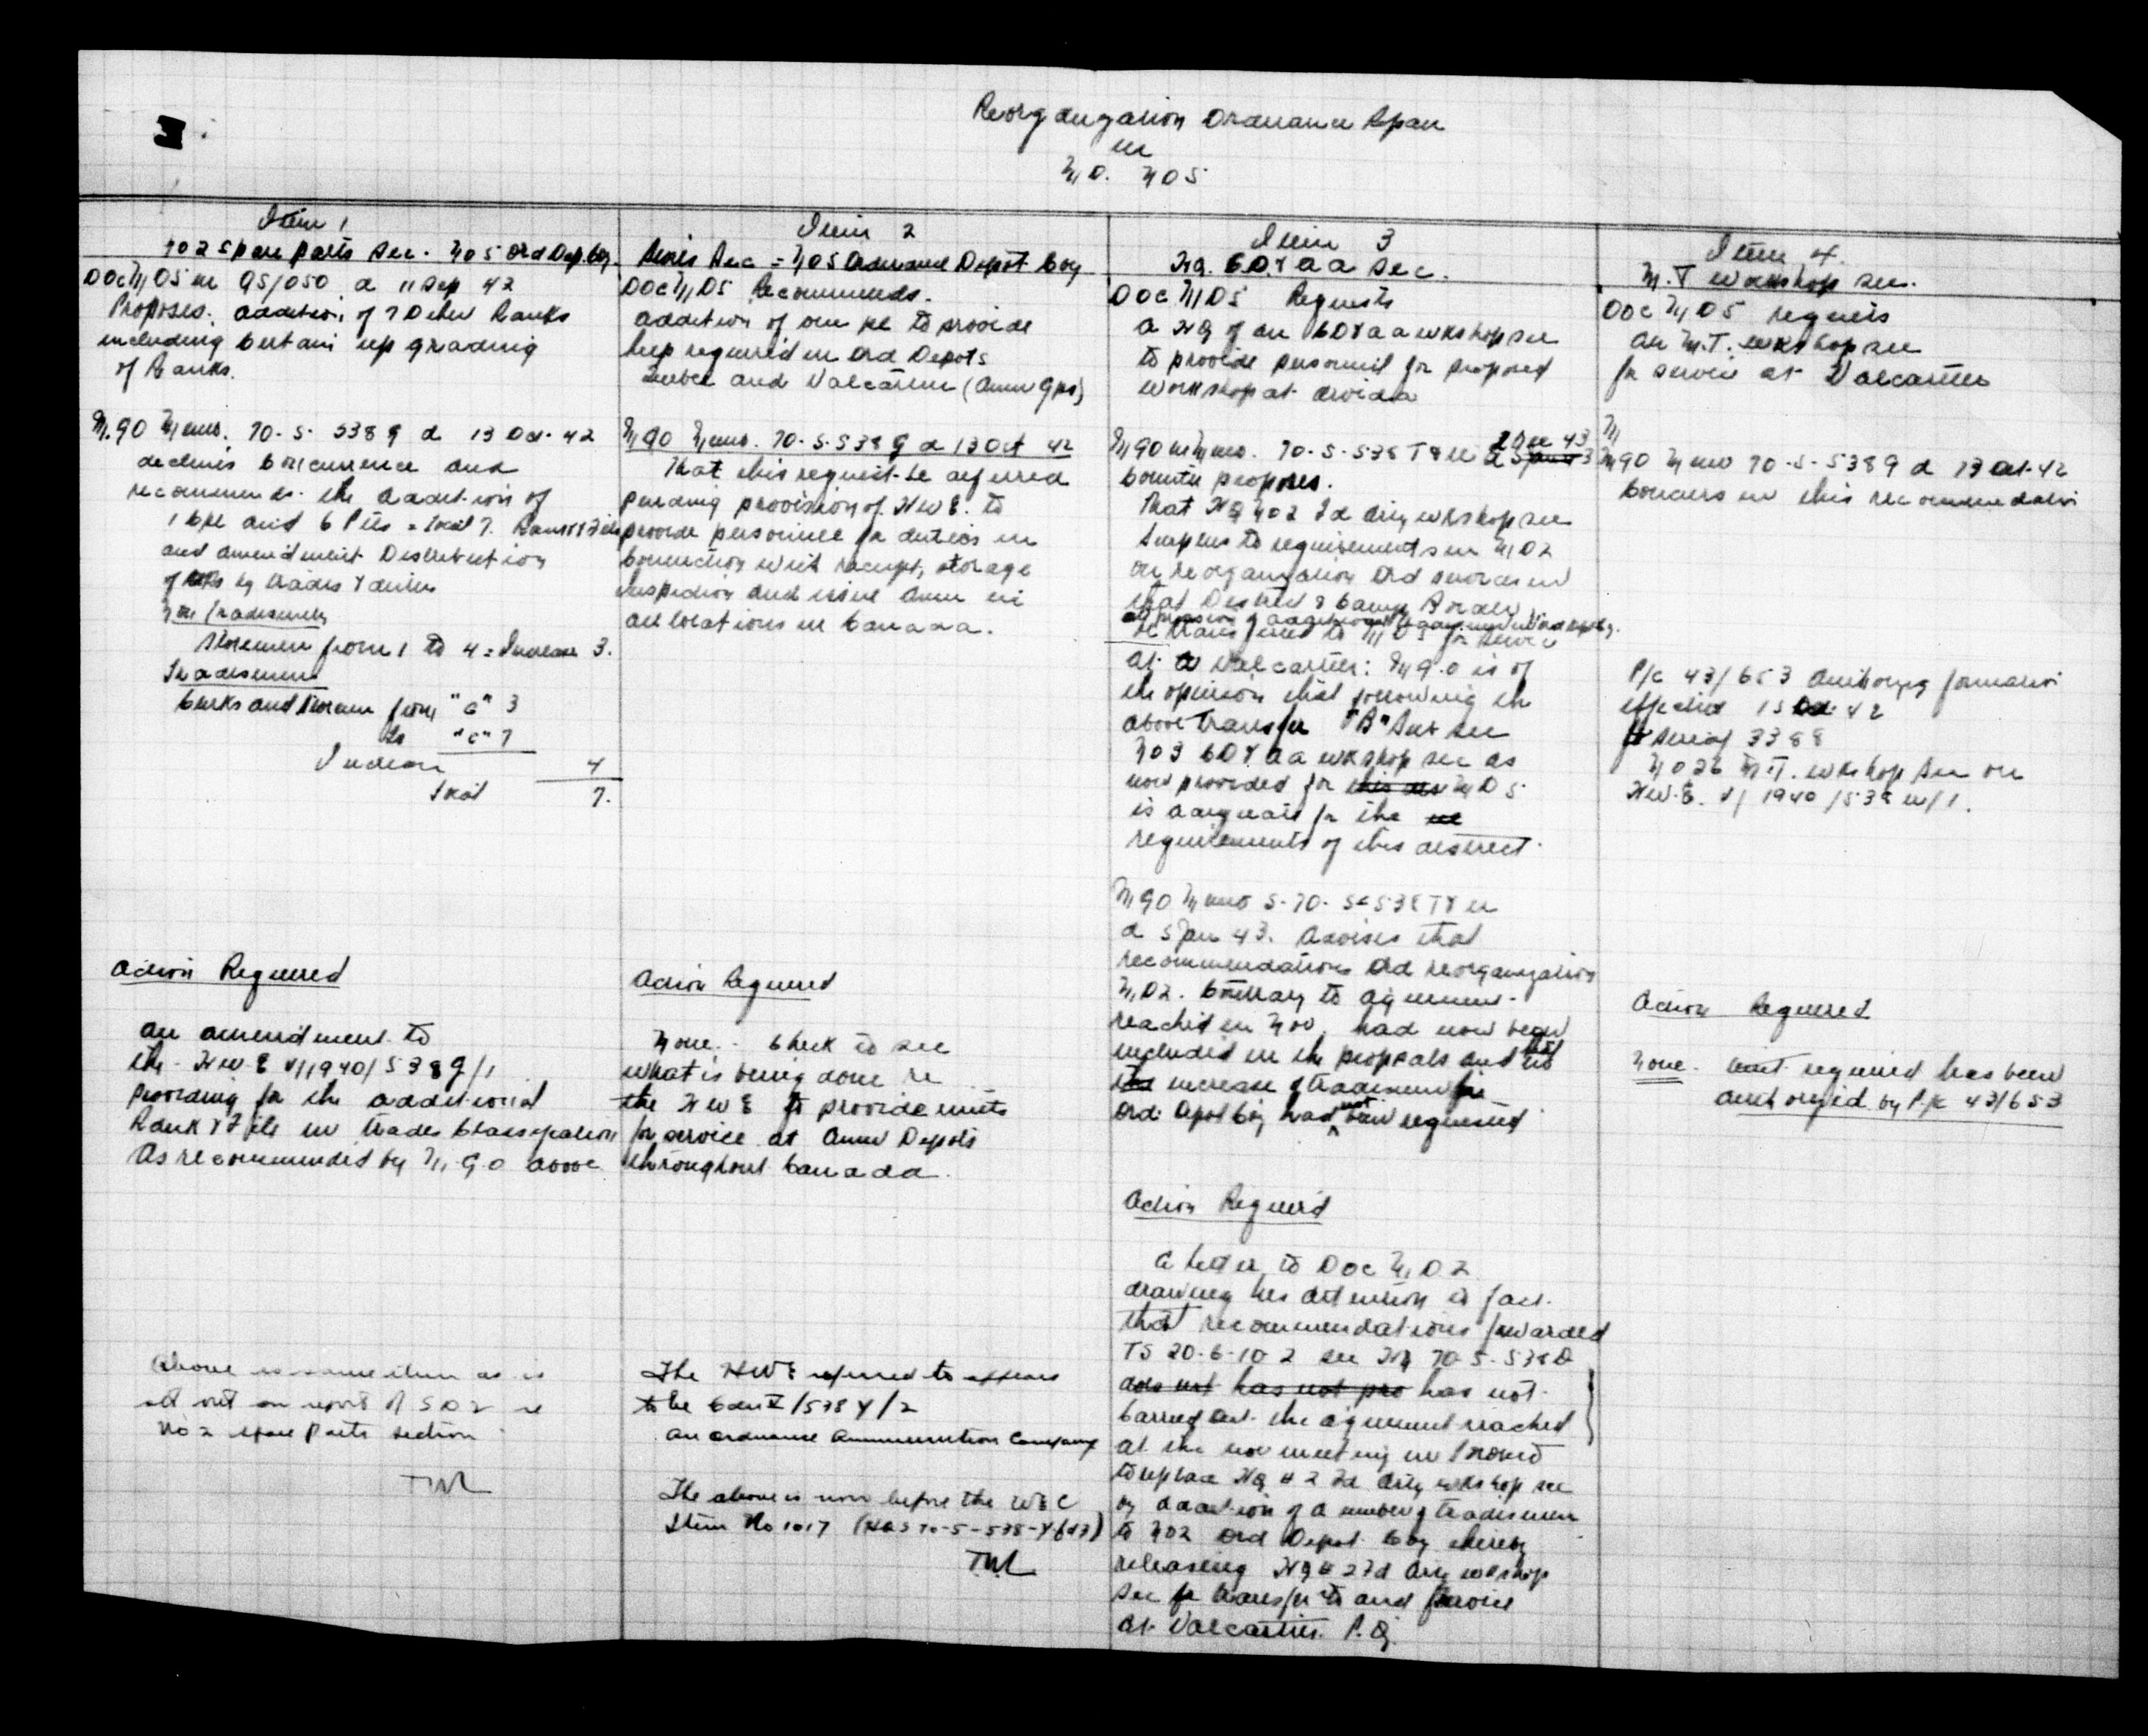 Reorganization Ordnance
in
M.D. No 5
Item 1
No 2 Spare Parts Sec. No 5 Ord Dep Coy
DOC MD5 in QS/050 d 11 Sep 42
Proposes: addition of 7 Other Ranks
including certain upgrading
of Ranks.
M.G.O Memo. 70-S-538 G d 13 Oct-42
declines concurrence and
recommends the addition of
1 Cpl and 6 Ptes = Total 7. Rank & File
and amendment Distribution
of by trades & duties
Non Tradesmen
Storemen from 1 to 4 = Increase 3.
Tradesmen
Clerks and Storemen from "C" 3
to "C" 7
Increase 4
Total 7.
Action Required
An amendment to
the - H W E V/1940/538 G/1
providing for the additional
Rank & File in trades Classification
As recommended by M.G.O above
Above is same item as is
set out on report M.D 2 re
No 2 Spare Parts Section
TWL
Item 2
Sec = No 5 Ordnance Depot Coy
DOC MD5 Recommends.
addition of one to provide
help required in Ord Depots
Quebec and Valcartier (Amm Gps)
MGO Memo. 70-S-538 G d 13 Oct 42
That this request be deferred
pending provision of H W E. to
provide personnel for duties in
connection with receipt, storage
inspection and issue Amm in
all locations in Canada.
Action Required
None. - Check to see
what is being done re
the H W E to provide units
for service at Amm Depots
throughout Canada.
The HWE referred to appears
to be Can V/538 Y/2
an ordnance Ammunition Company
The above is now before the WEC
Item No 1017 (HQS 70-5-538-Y )
TWL
Item 3
HQ. COY a a Sec.
DOC MD5 Requests
a HQ of an COY a a wkshop sec
to provide personnel for proposed
workshop at Arvida
MGO in Memo. 70-S-538 T & U d 2 Dec 43
Counter proposes.
That HQ No 2 Fd Arty wkshop sec
Surplus to requirements in MD2
on reorganization Ord services in
that District & Camp Borden
be transferred to MD5 for service
at Valcartier: M.G.O is of
the opinion that following the
above transfer "B" Sub sec
No 3 COY. a a wkshop sec as
now provided for this MD 5
is adequate for the
requirements of this district.
MGO Memo S-70-S-538 T & U
d 5 Jan 43. Advises that
recommendations Ord reorganization
MD2. Contrary to agreement
reached in Nov. had now been
included in the proposals and that
increase of tradesmen for
Ord Depot Coy had not been requested
Action Required
A letter to DOC M.D.2
drawing his attention to fact
that recommendations forwarded
TS 20-6-10-2 see HQ 70-5-538 D
does not has not pro has not
Carried out the agreement reached
at the Nov meeting in Toronto
to replace HQ # 2 Fd Arty wkshop sec
by addition of a number of tradesmen
to No 2 Ord Depot Coy thereby
releasing HQ # 2 Fd Arty wkshop
sec for transfer to and service
at Valcartier P.Q.
Item 4.
M.T workshop sec.
DOC MD5 requests
an M.T. wkshop sec
for service at Valcartier
MGO Memo 70-S-538 G d 13 Oct-42
Concurs in this recommendation
P/C 43/653 Authorizing formation
effective 15 Oct 42
Serial 3388
No 26 M.T. wkshop Sec on
H.W.E. V/1940/538 W/1.
Action Required
None. unit required has been
authorized by P/C 43/653